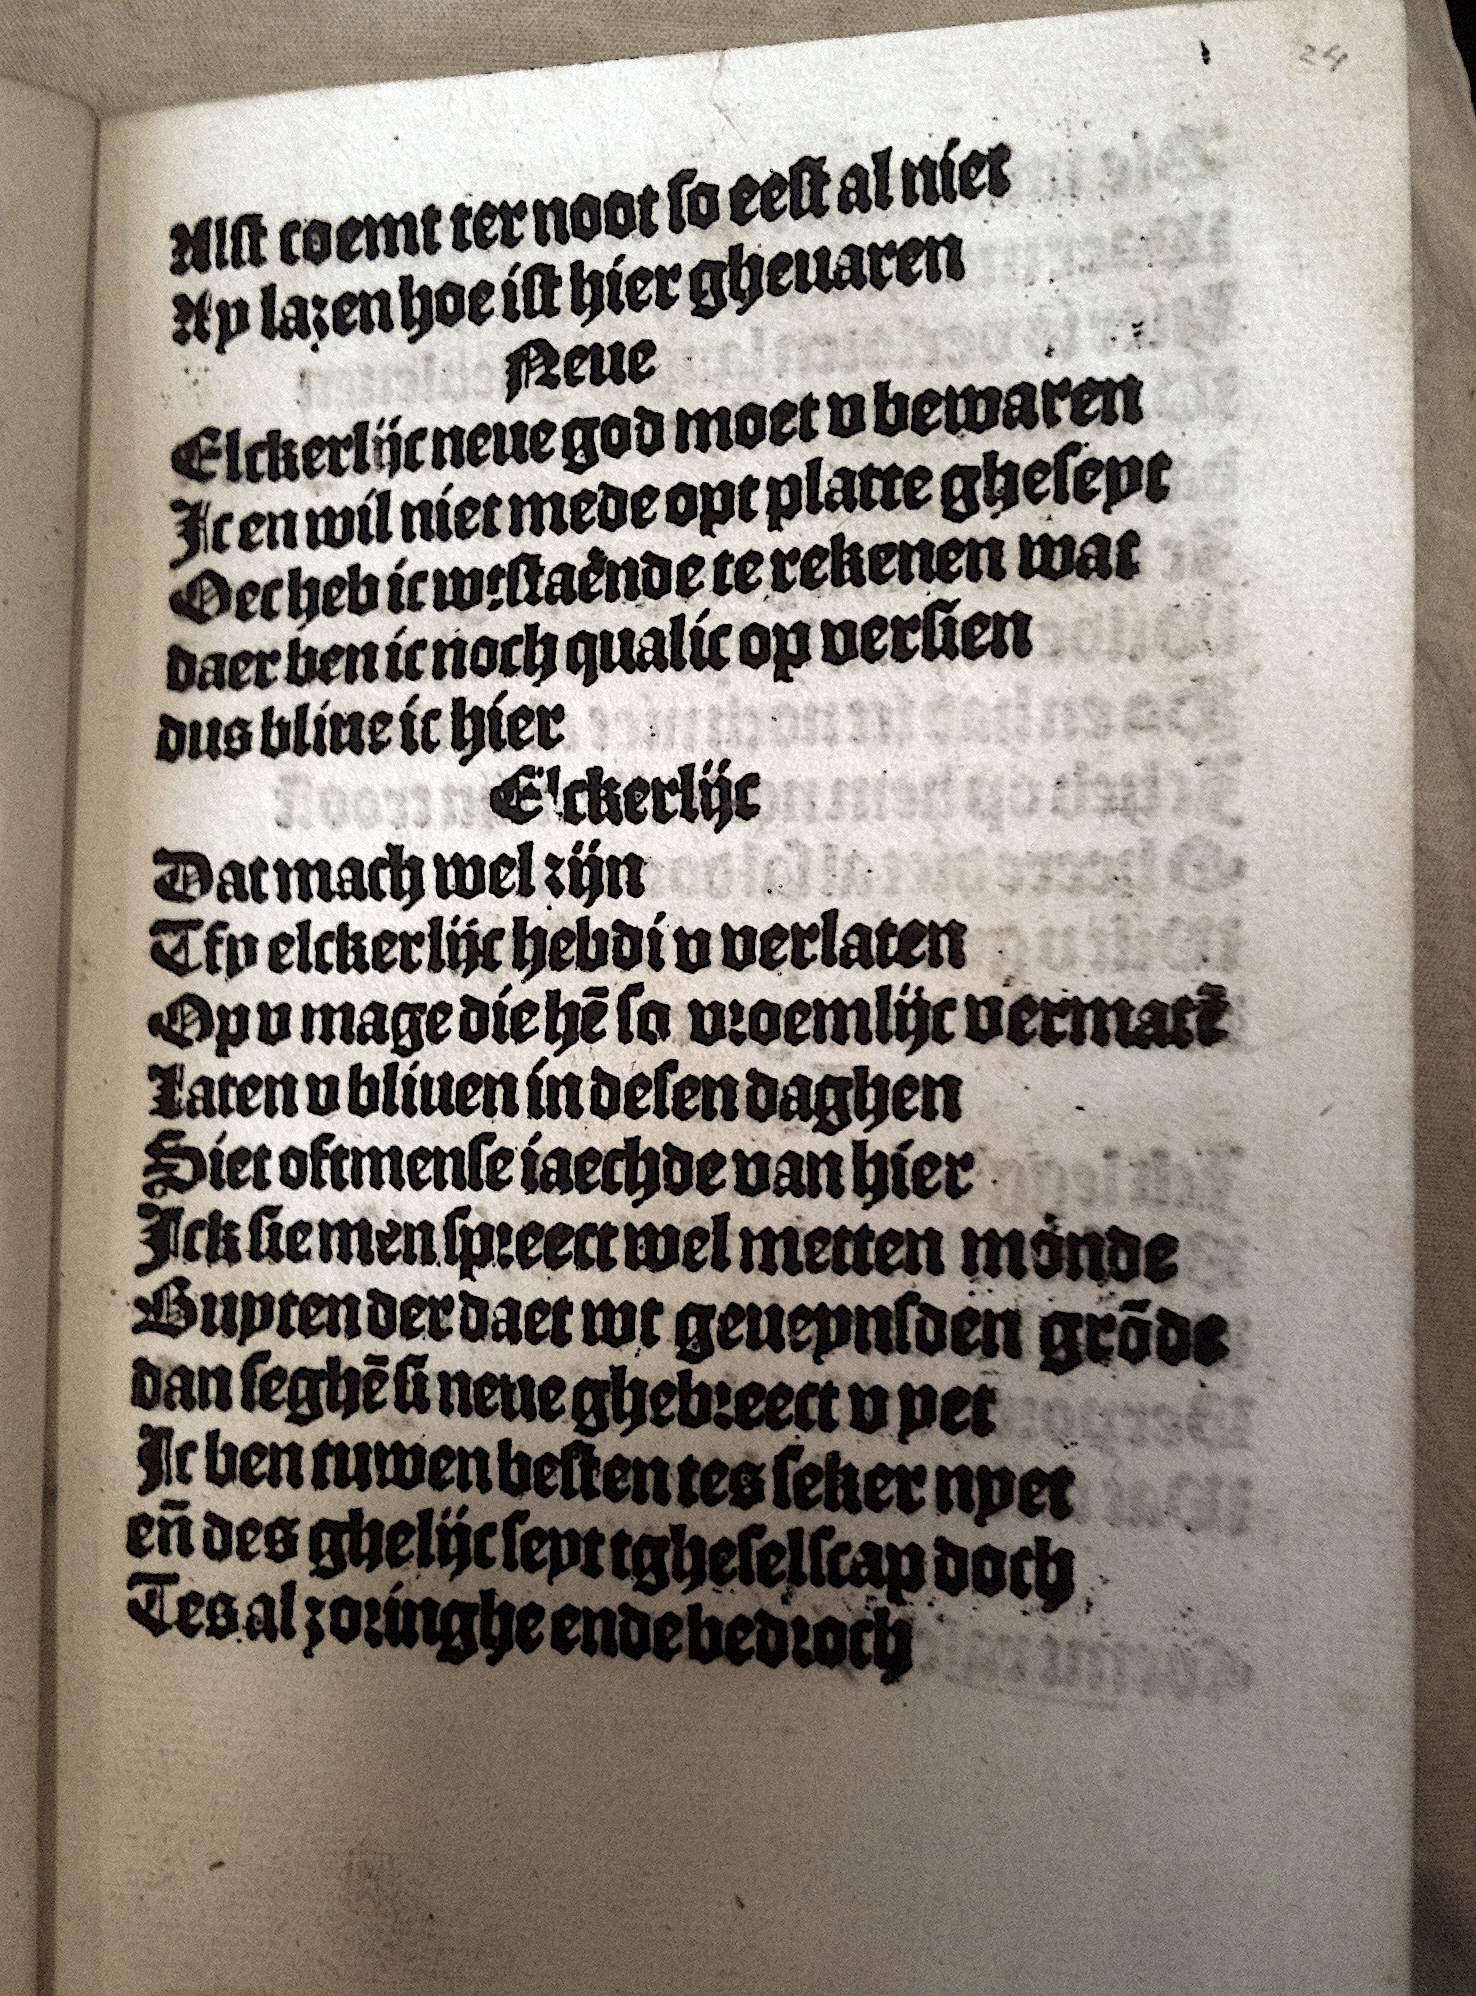 24
Alſt coemt ter noot ſo eeſt al niet
Ay lazen hoe iſt hier gheuaren
Neue
Elckerlijc neue god moet v bewaren
Ic en wil niet mede opt platte gheſeyt
Oec heb ic wtſtaēnde te rekenen wat
daer ben ic noch qualic op verſien
dus bliue ic hier
Elckerlijc
Dat mach wel zijn
Tfy elckerlijc hebdi v verlaten
Op v mage die hē ſo vroemlijc vermatē
Laten v bliuen in deſen daghen
Siet oftmenſe iaechde van hier
Ick ſie men ſpreect wel metten monde
Buyten der daet wt geueynſden grōde
dan ſeghē ſi neue ghebreect v yet
Ic ben tuwen beſten tes ſeker nyet
en̄ des ghelijc ſeyt tgheſelſcap doch
Tes al zoringhe ende bedroch